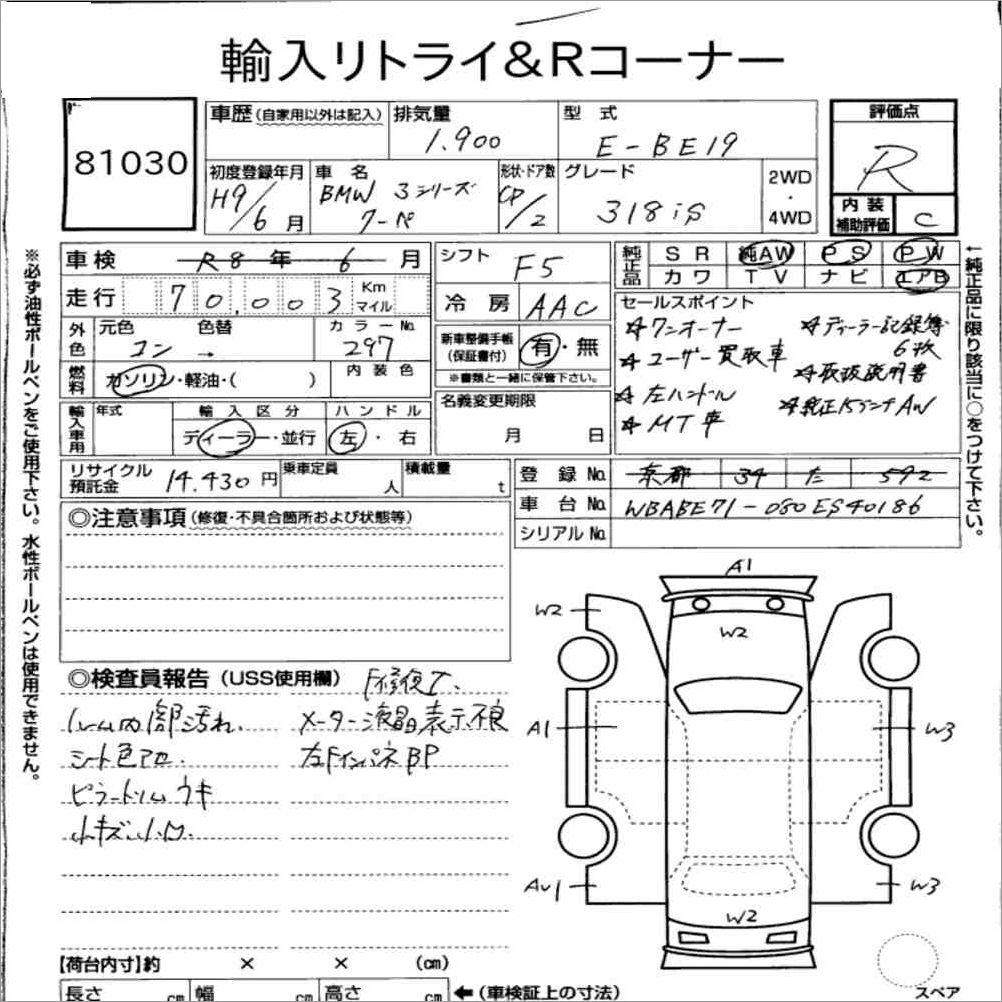 輸入リトライ&Rコーナー
81030
車歴(自家用以外は記入)
排気量
1.900
型式
E-BE19
評価点
R
初度登録年月
H9/6月
車名
BMW 3シリーズ
クーペ
形状・ドア数
CP/2
グレード
318is
2WD
・
4WD
内装
補助評価
C
車検 R8年 6月
シフト
F5
純正品
SR 純AW PS PW
カワ TV ナビ エアB
走行 70,003 Km
マイル
冷房
AAC
セールスポイント
☆ワンオーナー
☆ユーザー買取車
☆左ハンドル
☆MT車
☆ディーラー記録簿
6枚
☆取扱説明書
☆純正15インチAW
外色
元色 色替
コン →
カラーNo.
297
新車整備手帳
(保証書付)
有・無
※書類と一緒に保管下さい。
燃料
ガソリン・軽油・( )
内装色
輸入車用
年式
輸入区分
ディーラー・並行
ハンドル
左・右
名義変更期限
月 日
リサイクル
預託金
14.430円
乗車定員
人
積載量
t
登録No. 京都 34 た 592
車台No. WBABE71-080ES40186
シリアルNo.
◎注意事項(修復・不具合箇所および状態等)
◎検査員報告(USS使用欄)
F修復了.
ルーム内部汚れ.
シート色アセ.
ピラートリムウキ
小キズ、小凹.
メーター液晶表示不良
左FインパネBP
A1
W2
W2
A1
W3
AU1
W3
W2
スペア
【荷台内寸】約 × × (cm)
長さ cm 幅 cm 高さ cm ←(車検証上の寸法)
※必ず油性ボールペンをご使用下さい。水性ボールペンは使用できません。
←純正品に限り該当に○をつけて下さい。